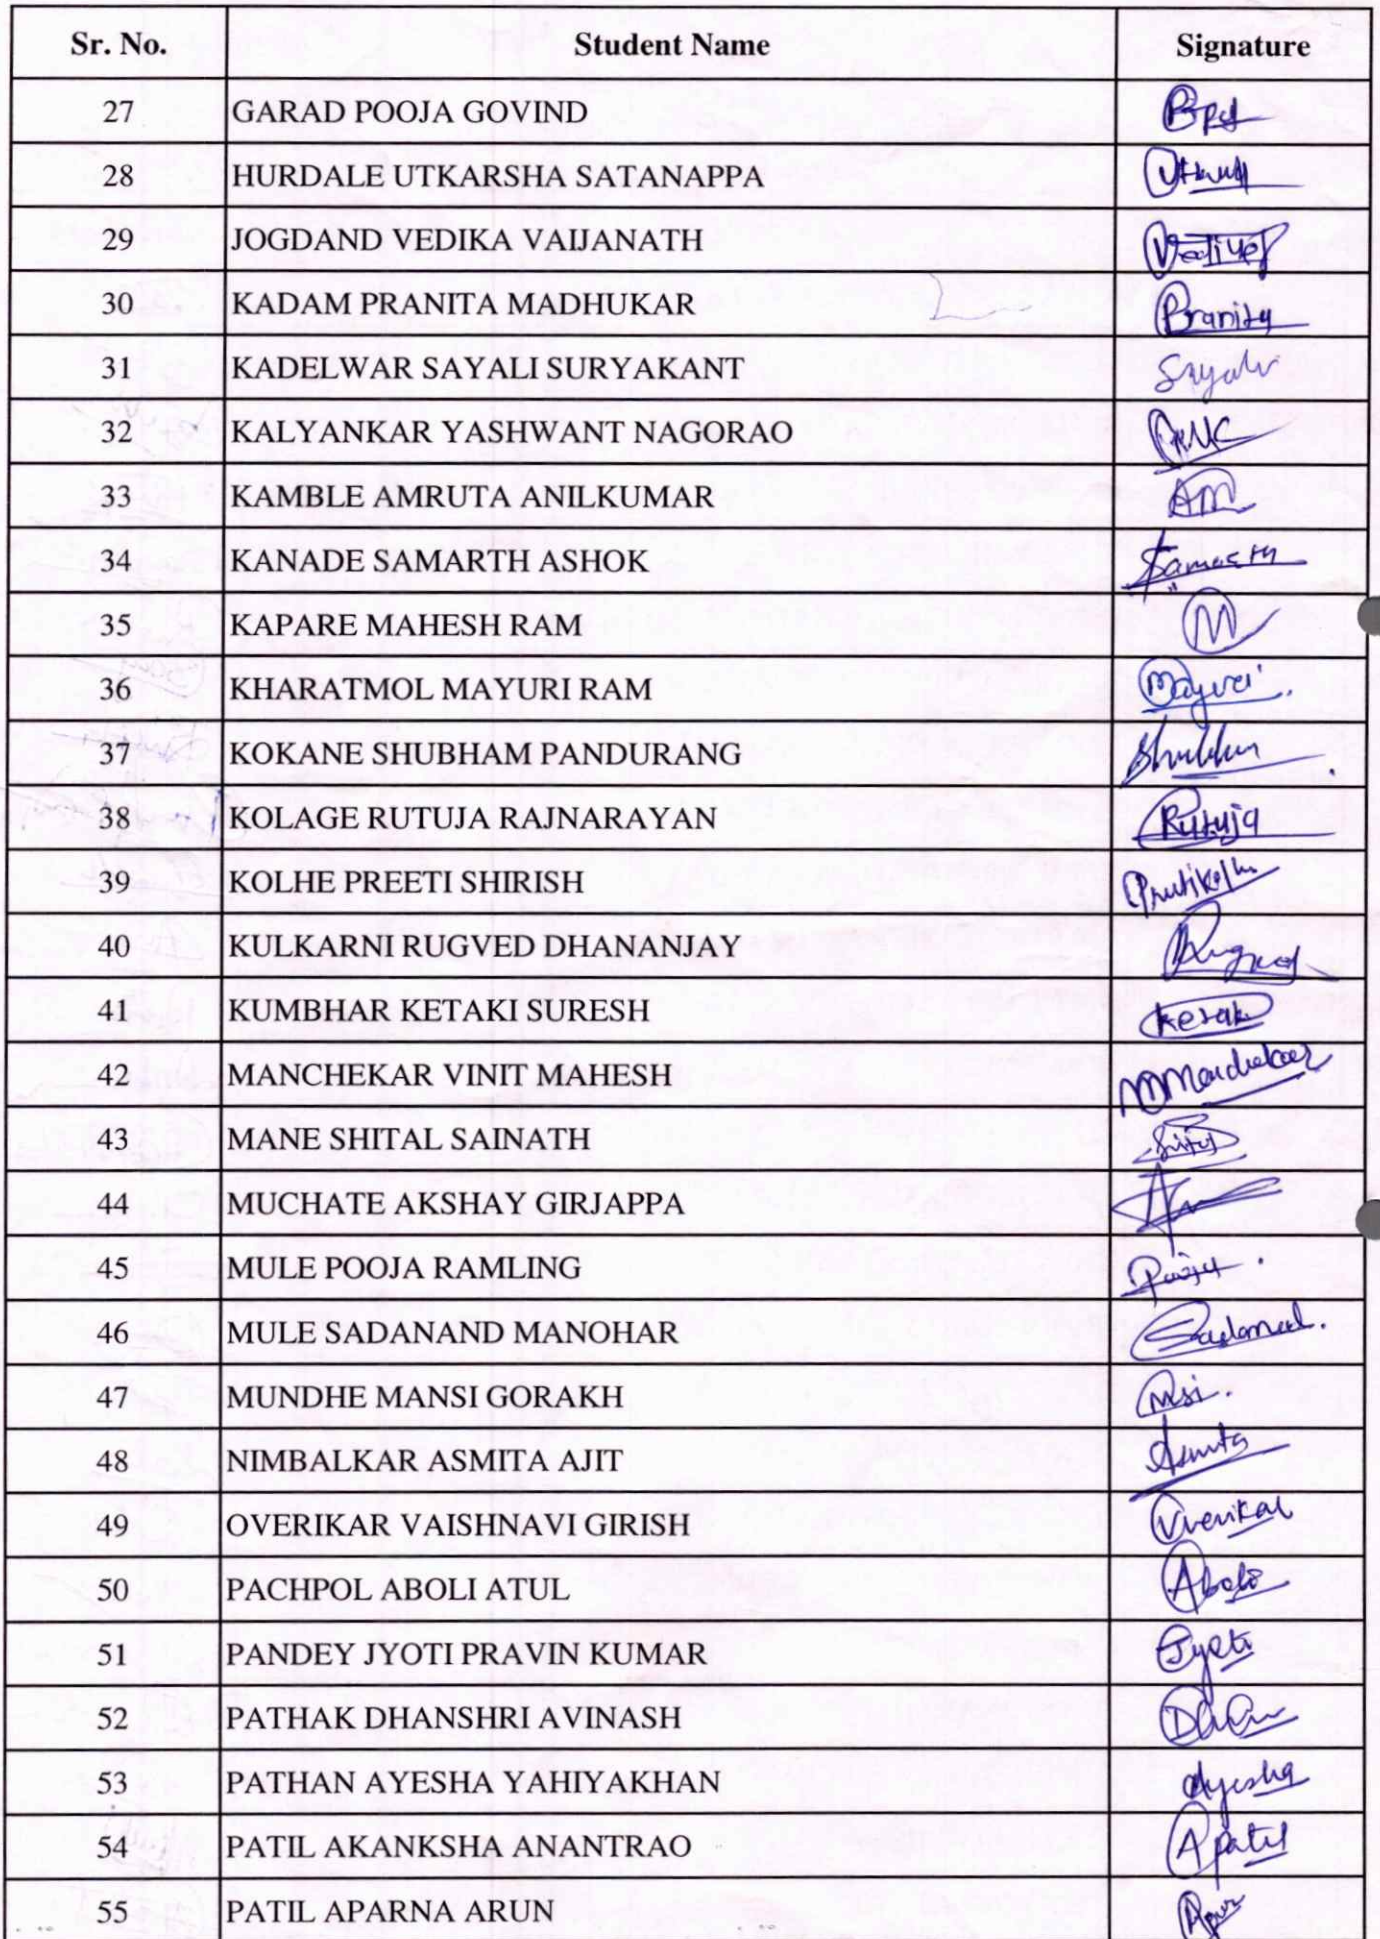 Sr. No. Student Name Signature
27 GARAD POOJA GOVIND
28 HURDALE UTKARSHA SATANAPPA
29 JOGDAND VEDIKA VAIJANATH
30 KADAM PRANITA MADHUKAR Pranita
31 KADELWAR SAYALI SURYAKANT Sayali
32 KALYANKAR YASHWANT NAGORAO
33 KAMBLE AMRUTA ANILKUMAR AM
34 KANADE SAMARTH ASHOK Samarth
35 KAPARE MAHESH RAM M
36 KHARATMOL MAYURI RAM Mayuri
37 KOKANE SHUBHAM PANDURANG
38 KOLAGE RUTUJA RAJNARAYAN Rutuja
39 KOLHE PREETI SHIRISH
40 KULKARNI RUGVED DHANANJAY
41 KUMBHAR KETAKI SURESH
42 MANCHEKAR VINIT MAHESH
43 MANE SHITAL SAINATH
44 MUCHATE AKSHAY GIRJAPPA
45 MULE POOJA RAMLING Pooja
46 MULE SADANAND MANOHAR
47 MUNDHE MANSI GORAKH Msi.
48 NIMBALKAR ASMITA AJIT Asmita
49 OVERIKAR VAISHNAVI GIRISH
50 PACHPOL ABOLI ATUL Aboli
51 PANDEY JYOTI PRAVIN KUMAR Jyoti
52 PATHAK DHANSHRI AVINASH
53 PATHAN AYESHA YAHIYAKHAN Ayesha
54 PATIL AKANKSHA ANANTRAO Apatil
55 PATIL APARNA ARUN